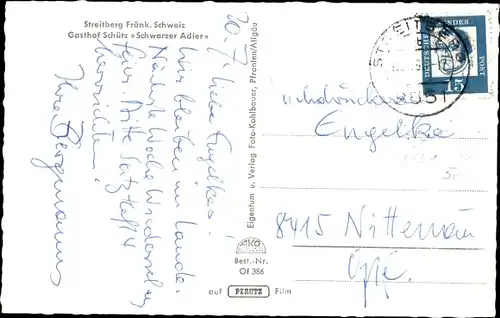 Streitberg Fränk. Schweiz
Gasthof Schütz »Schwarzer Adler«
20. 7.
Liebe Engelkes!
Wir bleiben im Lande.
Nächste Woche
Bitte
herrichten!
Ihre Bergmanns
Eigentum u. Verlag Foto-Kohlbauer, Pfronten/Allgäu
AKO
Best.-Nr.
Of 386
auf PERUTZ Film
STREITBERG
8551
DEUTSCHE BUNDESPOST
15
Engelke
8415 Nittenau
Opf.